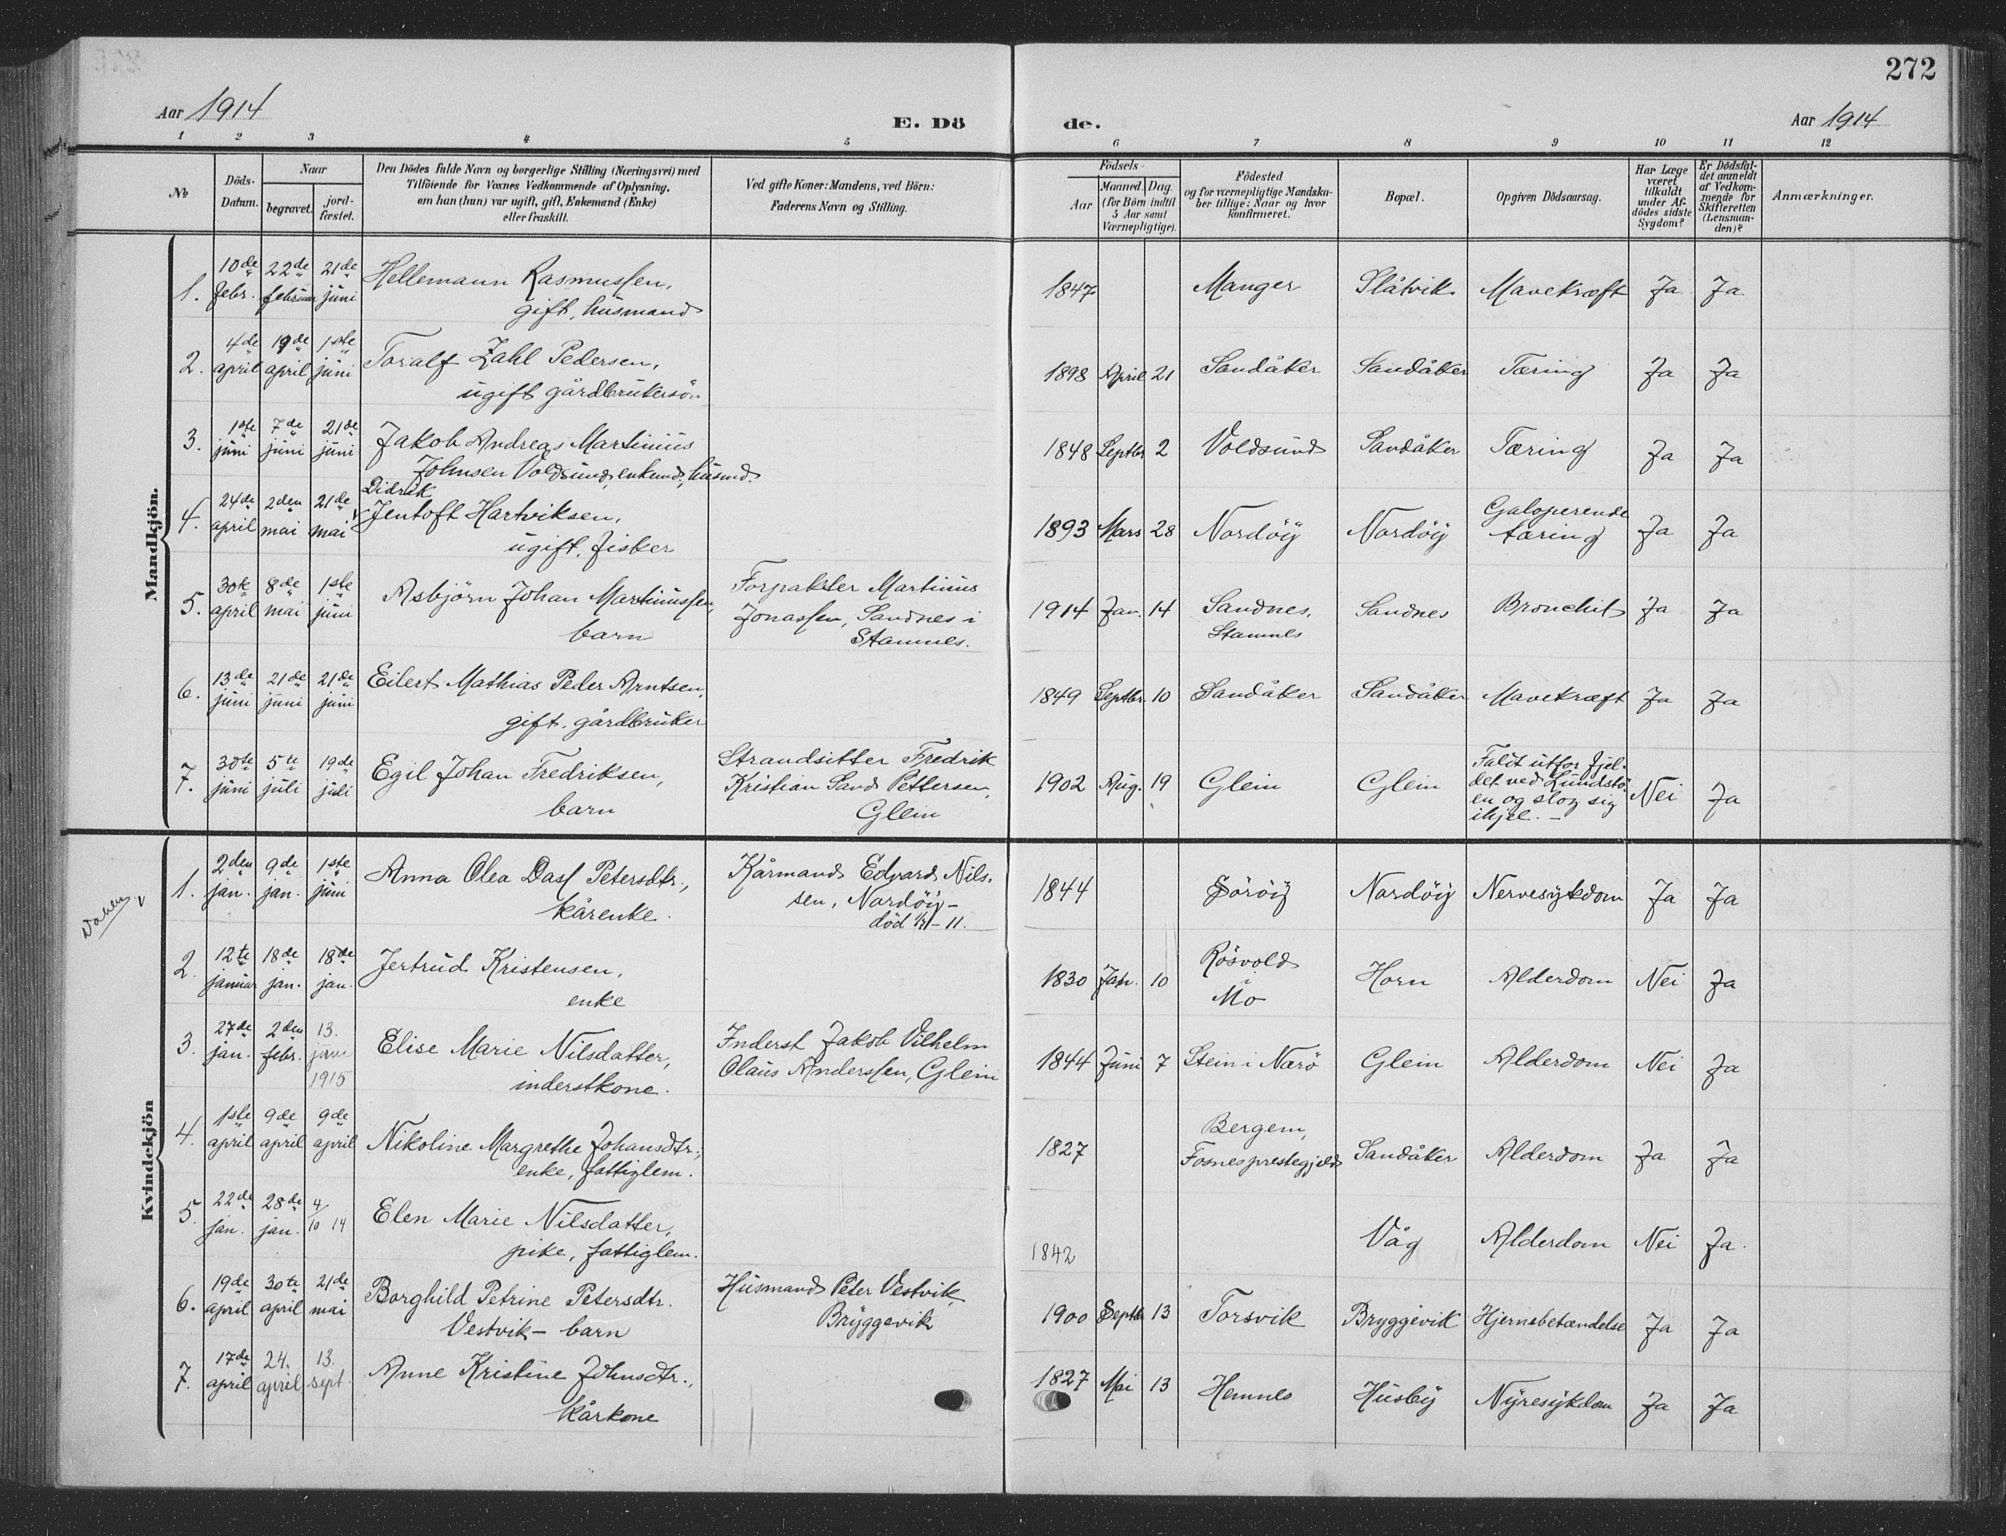 272
Aar 1914
E. Dö
de.
Aar 1914
1 2 3 4 5 6 7 8 9 10 11 12
No
Döds-
Datum.
Naar
begravet.
jord-
fæstet.
Den Dödes fulde Navn og borgerlige Stilling (Næringsvei) med
Tilföiende for Voxnes Vedkommende af Oplysning,
om han (hun) var ugift, gift, Enkemand (Enke)
eller fraskilt.
Ved gifte Koner: Mandens, ved Börn:
Faderens Navn og Stilling.
Födsels-
Aar
Maaned. Dag.
(for Börn indtil
5 Aar samt
Værnepligtige).
Födested
og for værnepligtige Mandska-
ber tillige: Naar og hvor
konfirmeret.
Bopæl.
Opgiven Dödsaarsag.
Har Læge
været
tilkaldt
under Af-
dödes sidste
Sygdom?
Er Dödsfal-
det anmeldt
af Vedkom-
mende for
Skifteretten
(Lensman-
den)?
Anmærkninger.
Mandkjön.
1. 10de febr. 22de februar 21de juni Hellemann Rasmussen, 1847 Manger Slåtvik Mavekræft Ja Ja
gift, husmand
2. 4de april 19de april 1ste juni Toralf Zahl Pedersen, 1898 April 21 Sandåker Sandåker Tæring Ja Ja
ugift gårdbrukersön
3. 1ste juni 7de juni 21de juni Jakob Andreas Martinius 1848 Septbr. 2 Voldsund Sandåker Tæring Ja Ja
Johnsen Voldsund, enkemd., husmd.
Didrik
4. 24de april 2den mai 21de mai Jentoft Hartviksen, 1893 Mars 28 Nordöÿ Nordöÿ Galoperende tæring Ja Ja
ugift, fisker
5. 30te april 8de mai 1ste juni Asbjörn Johan Martinussen, Forpakter Martinus 1914 Jan. 14 Sandnes, Sandnes Bronchit Ja Ja
barn Jonassen, Sandnes i Stamnes
Stamnes.
6. 13de juni 21de juni 21de juni Eilert Mathias Peder Arntsen, 1849 Septbr. 10 Sandåker Sandåker Mavekræft Ja Ja
gift, gårdbruker
7. 30te juni 5te juli 19de juli Egil Johan Fredriksen, Strandsitter Fredrik 1902 Aug. 19 Glein Glein Faldt utfor fjel- Nei Ja
barn Kristian Sand Pettersen, det ved Lundstö-
Glein en og slog sig
ihjel. —
Kvindekjön
1. 2den jan. 9de jan. 1ste juni Anna Olea Dass Petersdtr., Kårmand Edvard Nils- 1844 Söröÿ Nordöÿ Nervesykdom Ja Ja
kårenke. sen, Nordöÿ —
död – 11.
2. 12te januar 18de jan. 18de jan. Jertrud Kristensen, 1830 Jan. 10 Rösvold i Mo Horn Alderdom Nei Ja
enke
3. 27de jan. 2den febr. 13. juni 1915 Elise Marie Nilsdatter, Inderst Jakob Vilhelm 1844 Juni 7 Stein i Nærö Glein Alderdom Nei Ja
inderstkone. Olaus Anderssen, Glein
4. 1ste april 9de april 9de april Nikoline Margrethe Johansdtr., 1827 Bergem, Sandåker Alderdom Ja Ja
enke, fattiglem. Fosnes prestegjeld
5. 22de jan. 28de jan. 4/10 14 Elen Marie Nilsdatter, 1842 Våg Alderdom Nei Ja.
pike, fattiglem.
6. 19de april 30te april 21de mai Borghild Petrine Petersdtr. Husmand Peter Vestvik, 1900 Septbr. 13 Torsvik Bryggevik Hjernebetændelse Ja Ja
Vestvik — barn Bryggevik
7. 17de april 24. april 13. sept. Anne Kristine Johnsdtr., 1827 Mai 13 Hemnes Husby Nyresykdom Ja Ja
kårkone